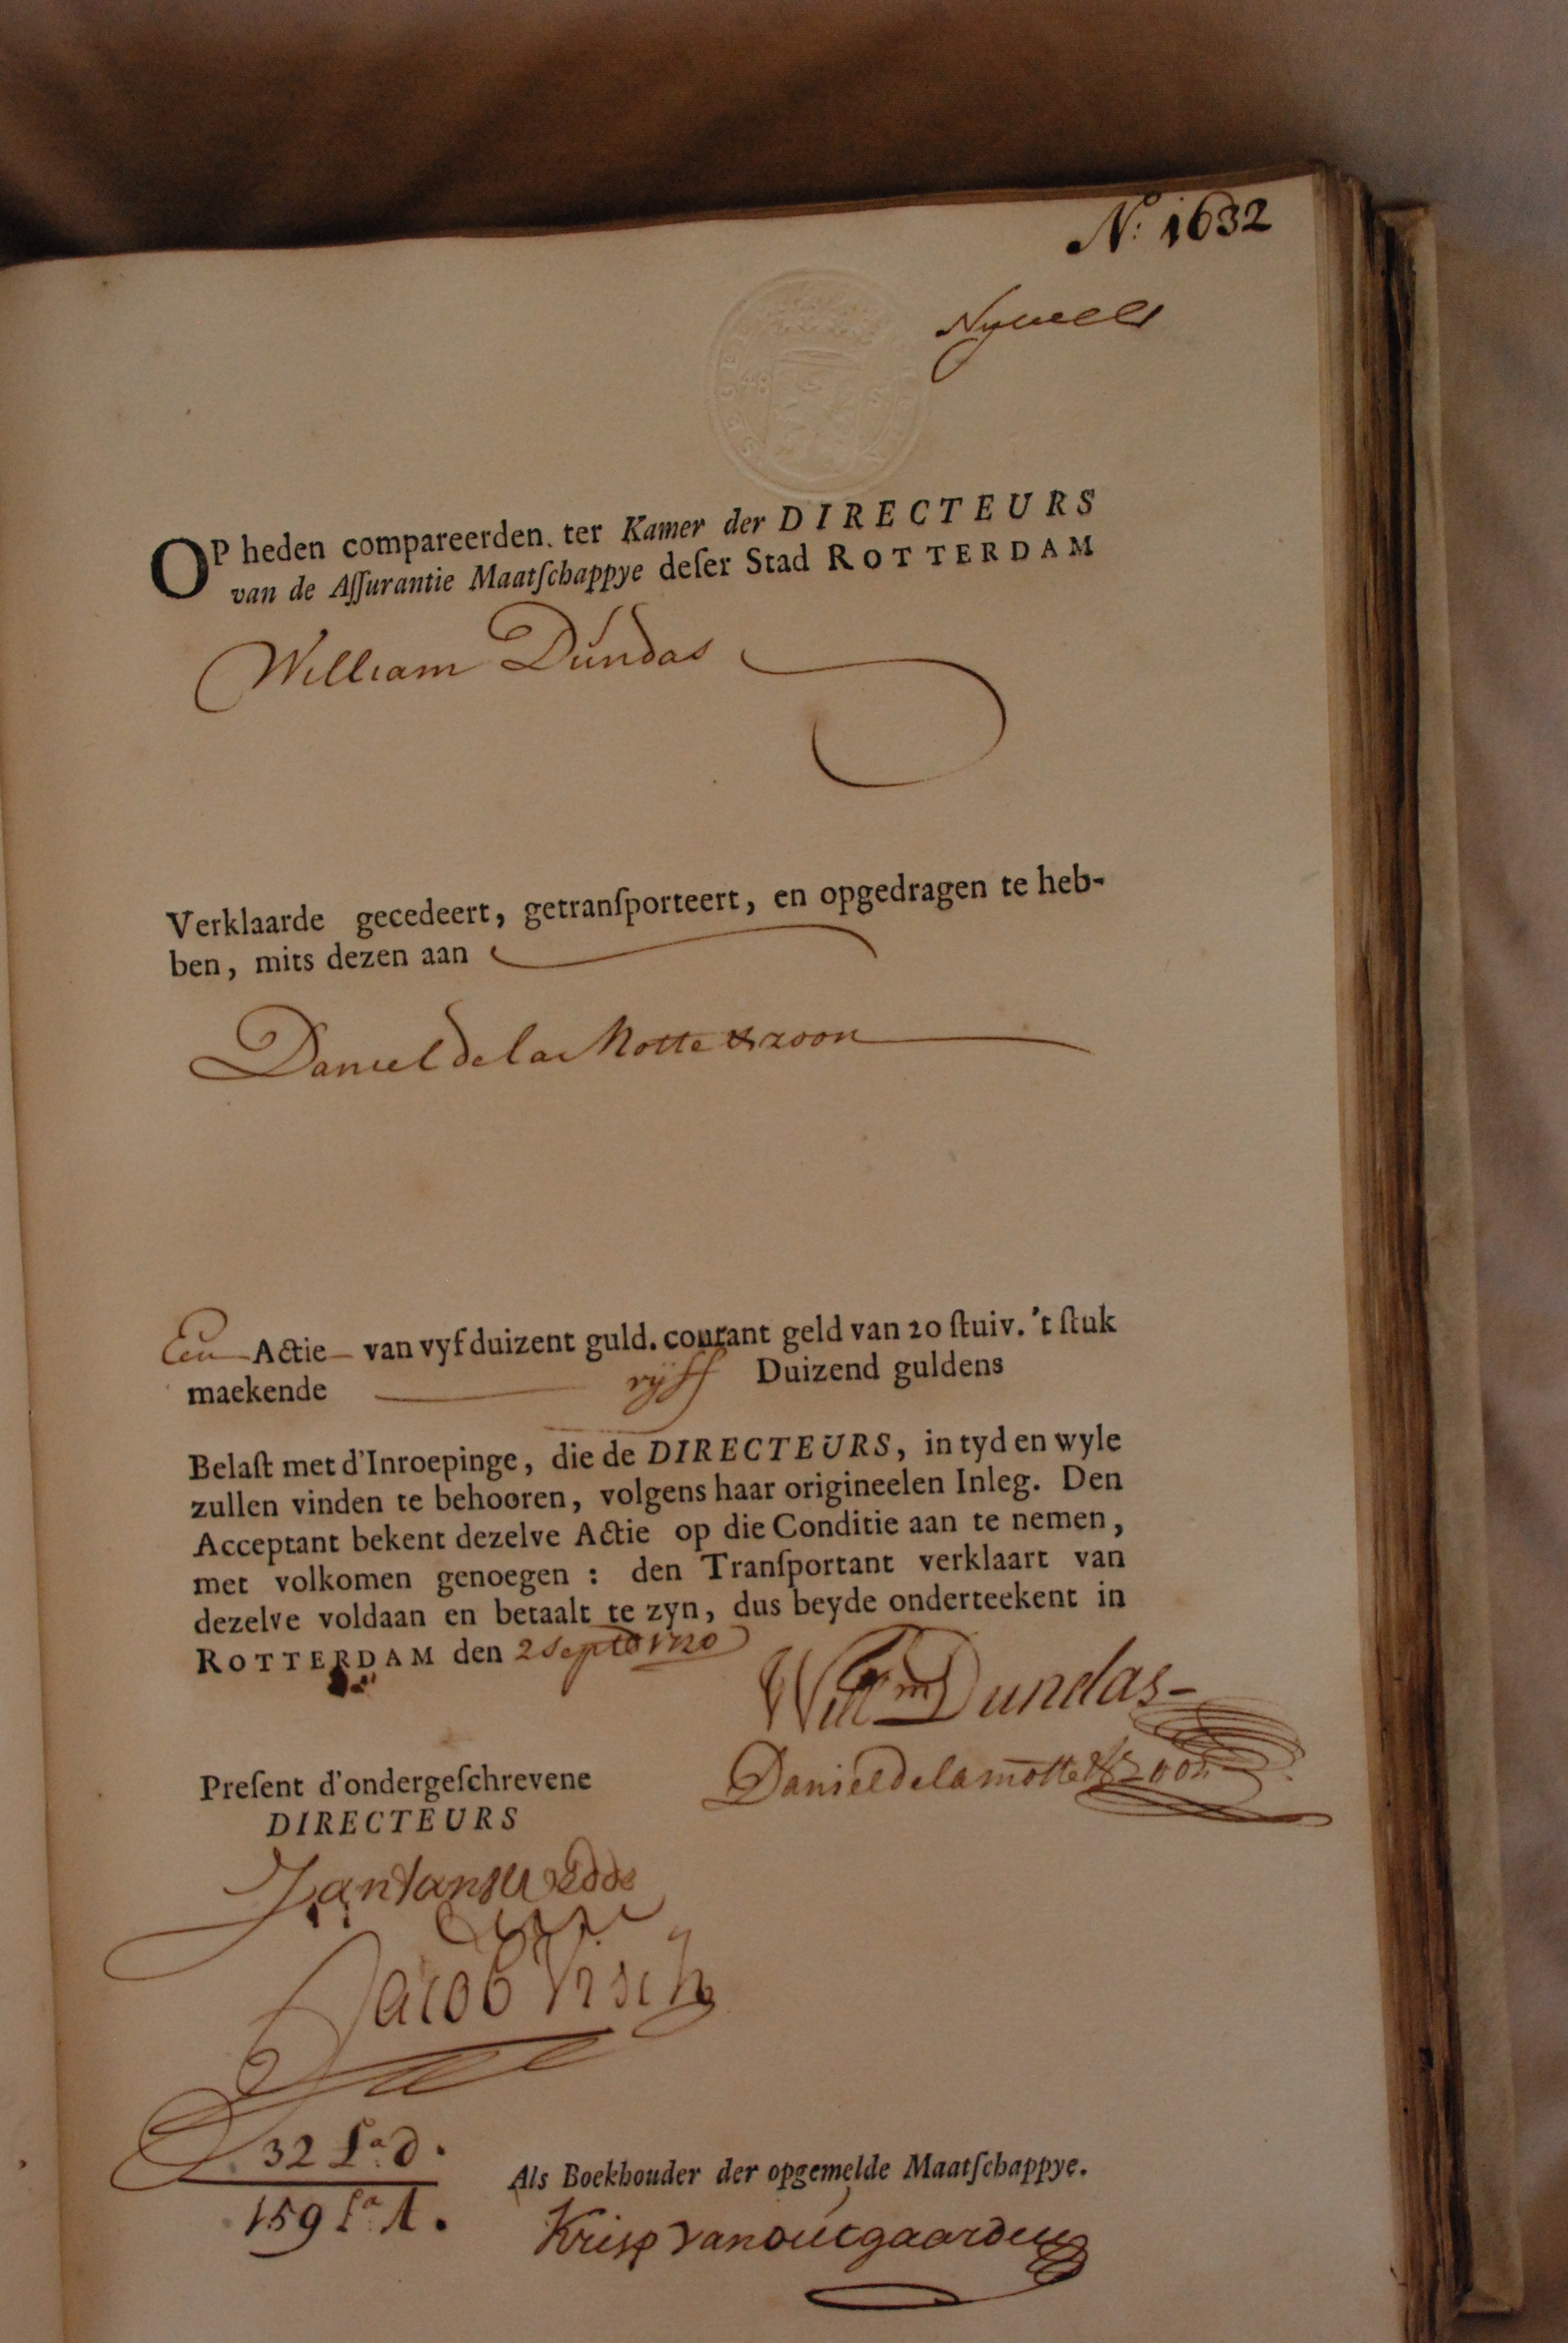 No: 1632
OP heden compareerden. ter Kamer der DIRECTEURS
van de Aſſurantie Maatſchappye deſer Stad ROTTERDAM
William Dundas
Verklaarde gecedeert, getranſporteert, en opgedragen te heb-
ben, mits dezen aan
Daniel de la Motte & zoon
Een Actie van vyf duizent guld. courant geld van 20 ſtuiv. 't ſtuk
maekende vyff Duizend guldens
Belaſt met d'Inroepinge, die de DIRECTEURS, in tyd en wyle
zullen vinden te behooren, volgens haar origineelen Inleg. Den
Acceptant bekent dezelve Actie op die Conditie aan te nemen,
met volkomen genoegen : den Tranſportant verklaart van
dezelve voldaan en betaalt te zyn, dus beyde onderteekent in
ROTTERDAM den 2 Septb 1720
Willm Dundas
Daniel de la motte & Zoon
Preſent d'ondergeſchrevene
DIRECTEURS
Jacob Visch
32 La. d.
159 La. A.
Als Boekhouder der opgemelde Maatſchappye.
Krisp van outgaarden